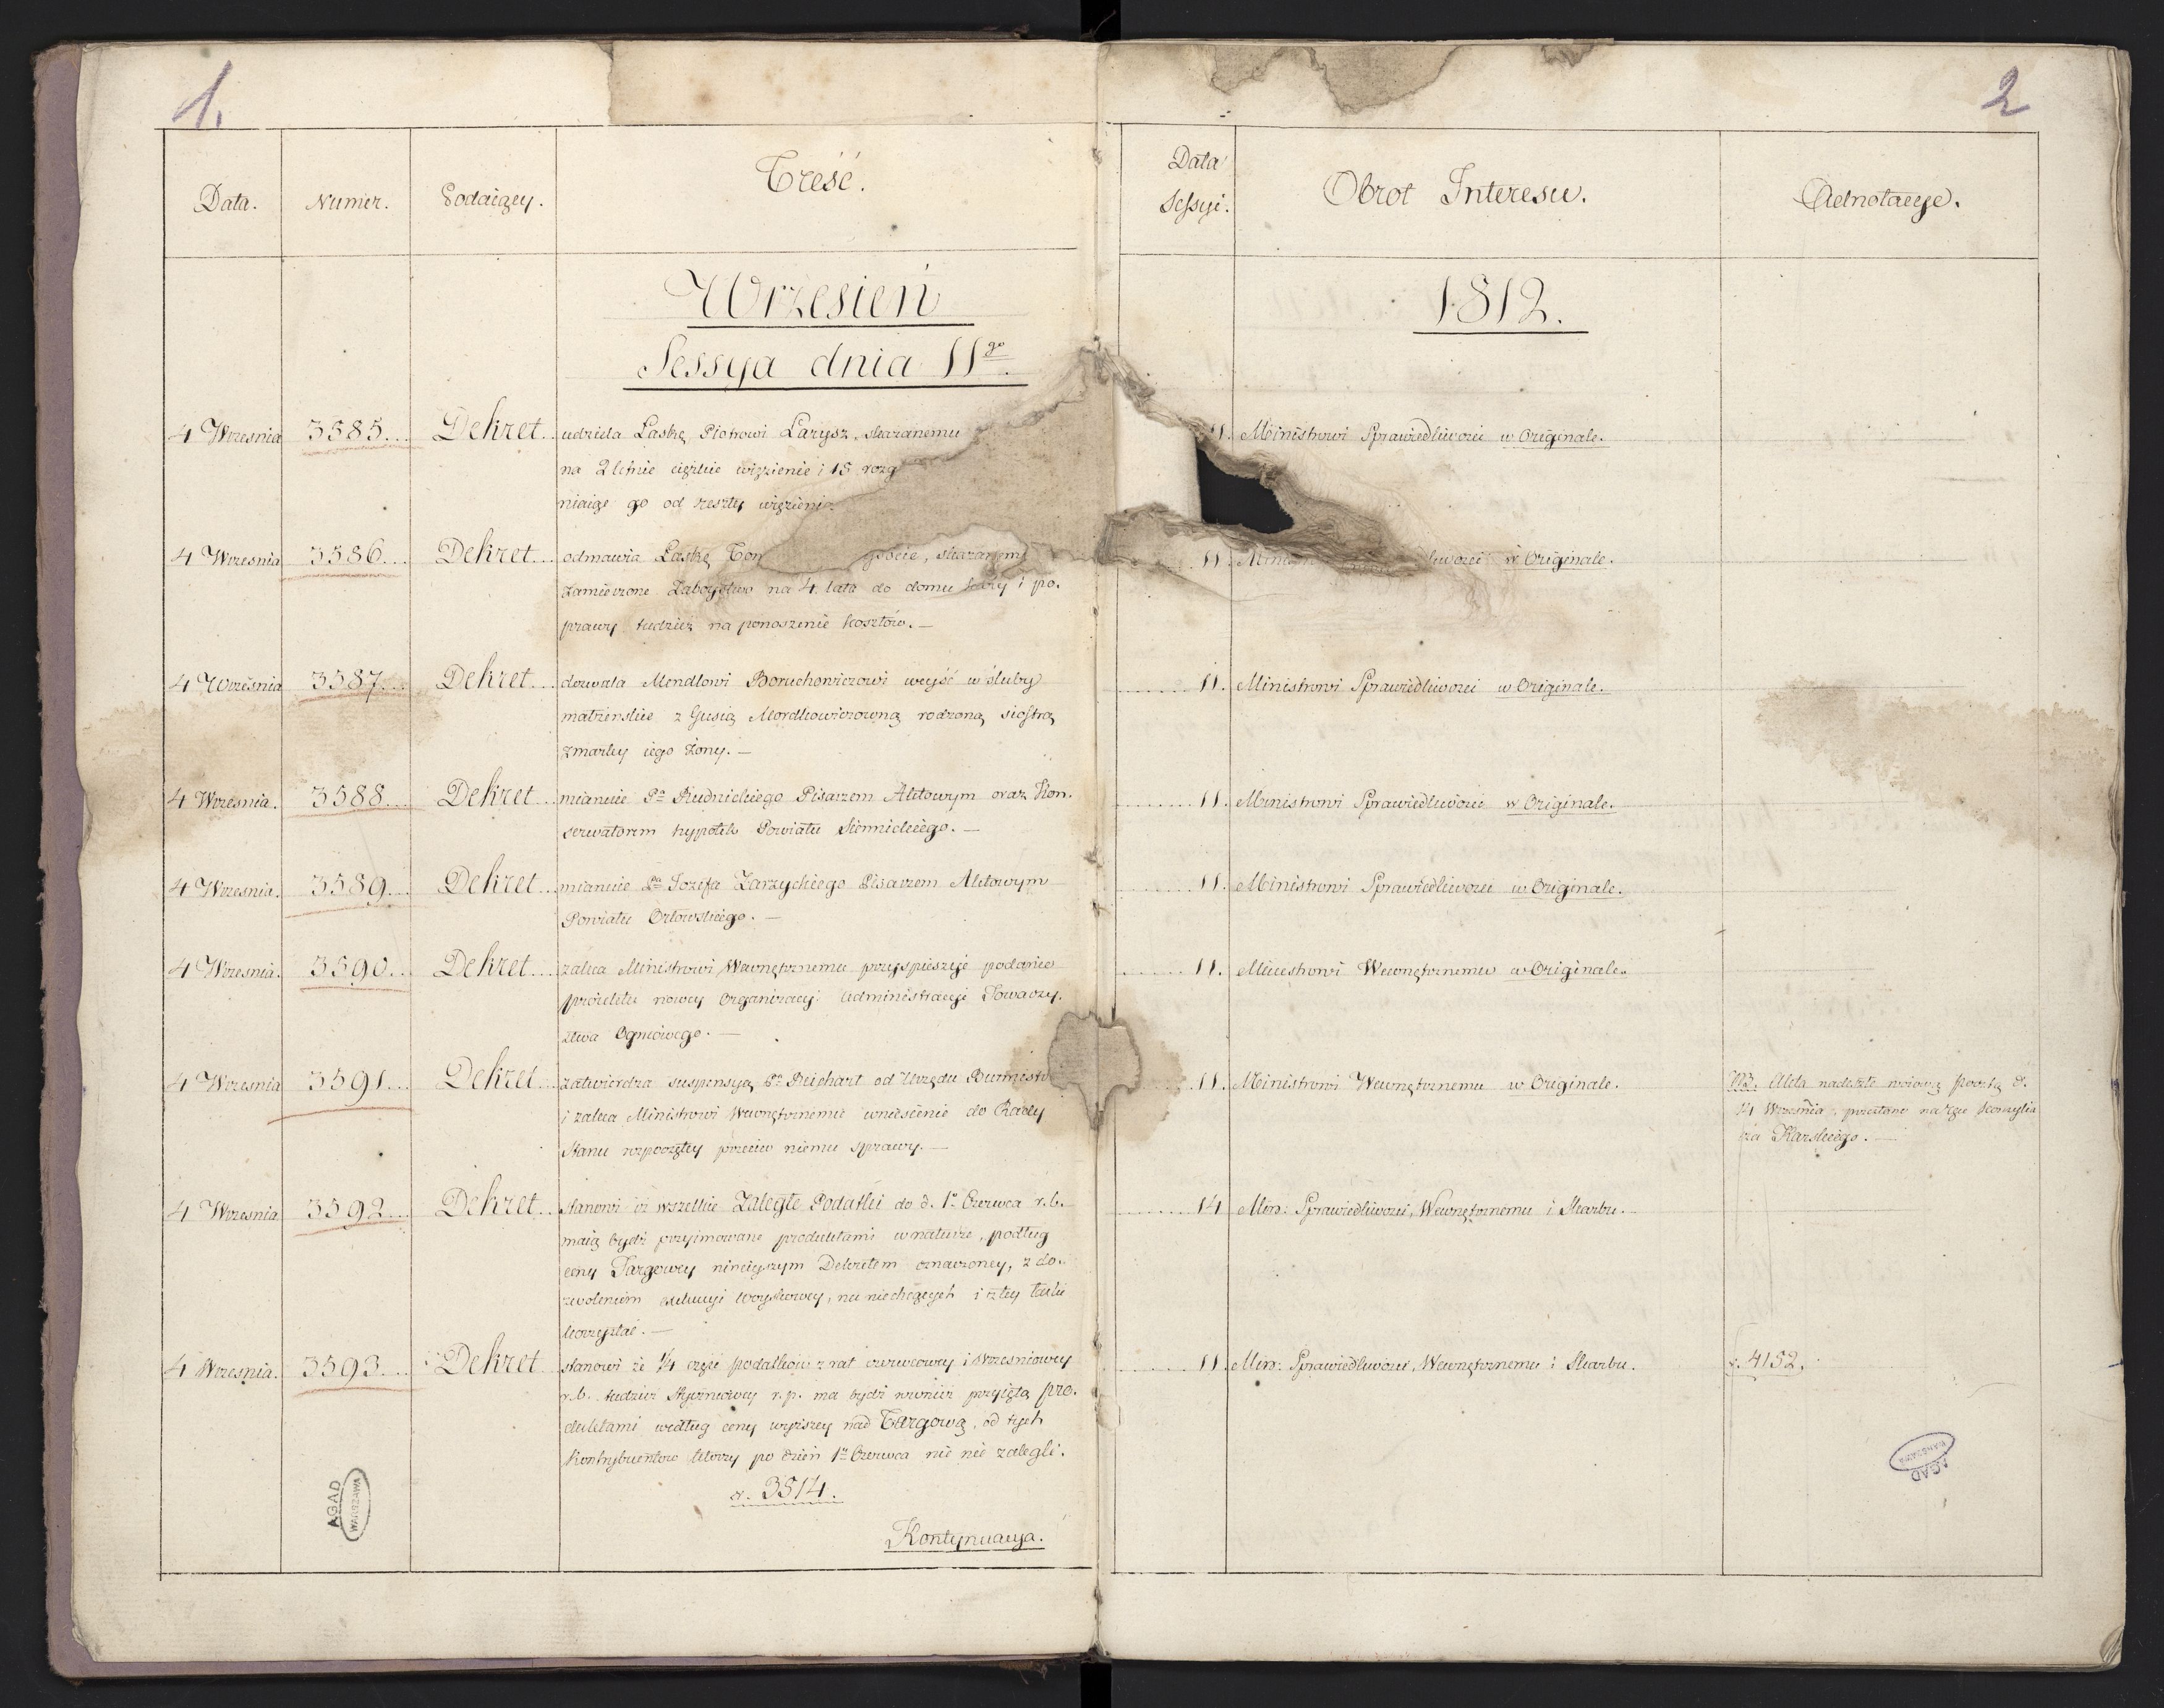 1.
2
Data.
Numer.
Podaiący.
Treść.
Data Sessyi.
Obrot Interesu.
Adnotacye.
Wrzesień
1812.
Sessya dnia 11go.
4 Wrzesnia 3585... Dekret... udziela Łaskę Piotrowi Larysz, skazanemu
na 2 letnie ciężkie więzienie i 15 rozg
niaiąc go od reszty więzieni
11. Ministrowi Sprawiedliwości w Originale.
4 Wrzesnia 3586... Dekret... odmawia Łaskę Tom skazanem
zamierzone Zaboystwo na 4. lata do domu kary i po-
prawy tudzież na ponoszenie kosztów. —
11. w Originale.
4 Wrzesnia 3587... Dekret... dozwala Mendlowi Boruchowiczowi weyść w śluby
małżenskie z Gusią Mordkowiczowną rodzoną siostrą
zmarłey iego żony. —
11. Ministrowi Sprawiedliwości w Originale.
4 Wrzesnia. 3588... Dekret... mianuie Pa Rudnickiego Pisarzem Aktowym oraz Kon-
serwatorem hypotek Powiatu Siennickiego. —
11. Ministrowi Sprawiedliwości w Originale.
4 Wrzesnia. 3589... Dekret... mianuie Pa Jozefa Zarzyckiego Pisarzem Aktowym
Powiatu Orłowskiego. —
11. Ministrowi Sprawiedliwości w Originale.
4 Wrzesnia. 3590... Dekret... zaleca Ministrowi Wewnętrznemu przyspieszyć podanie
proiektu nowey Organizacyi Administracyi Towarzy-
stwa Ogniowego. —
11. Ministrowi Wewnętrznemu w Originale.
4 Wrzesnia 3591... Dekret... zatwierdza suspensyą Pa Reichart od Urzędu Burmistr
i zaleca Ministrowi Wewnętrznemu wniesienie do Rady
Stanu rozpoczętey przeciw niemu sprawy. —
11. Ministrowi Wewnętrznemu w Originale.
NB. Akta nadeszłe pocztą d.
14 Wrzesnia przesłano na ręce
Karskiego. —
4 Wrzesnia 3592... Dekret... stanowi iż wszelkie Zaległe Podatki do d. 1o Czerwca r.b.
maią bydź przyimowane produktami w naturze, podług
ceny Targowey ninieyszym Dekretem oznaczoney, z do-
zwoleniem exekucyi woyskowey, na niechcących i z tey łaski
korzystać. —
14 Min: Sprawiedliwości, Wewnętrznemu i Skarbu. —
4 Wrzesnia. 3593... Dekret... stanowi że 1/4 część podatków z rat czerwcowey i Wrzesniowey
r.b. tudzież Styczniowey r.p. ma bydź również przyięta pro-
duktami według ceny wyższey nad Targową, od tych
kontrybuentow ktorzy po dzień 1o Czerwca nic nie zalegli.
11. Min: Sprawiedliwości, Wewnętrznemu i Skarbu.
4152.
3514.
Kontynuacya.
AGAD
WARSZAWA
AGAD
WARSZAWA